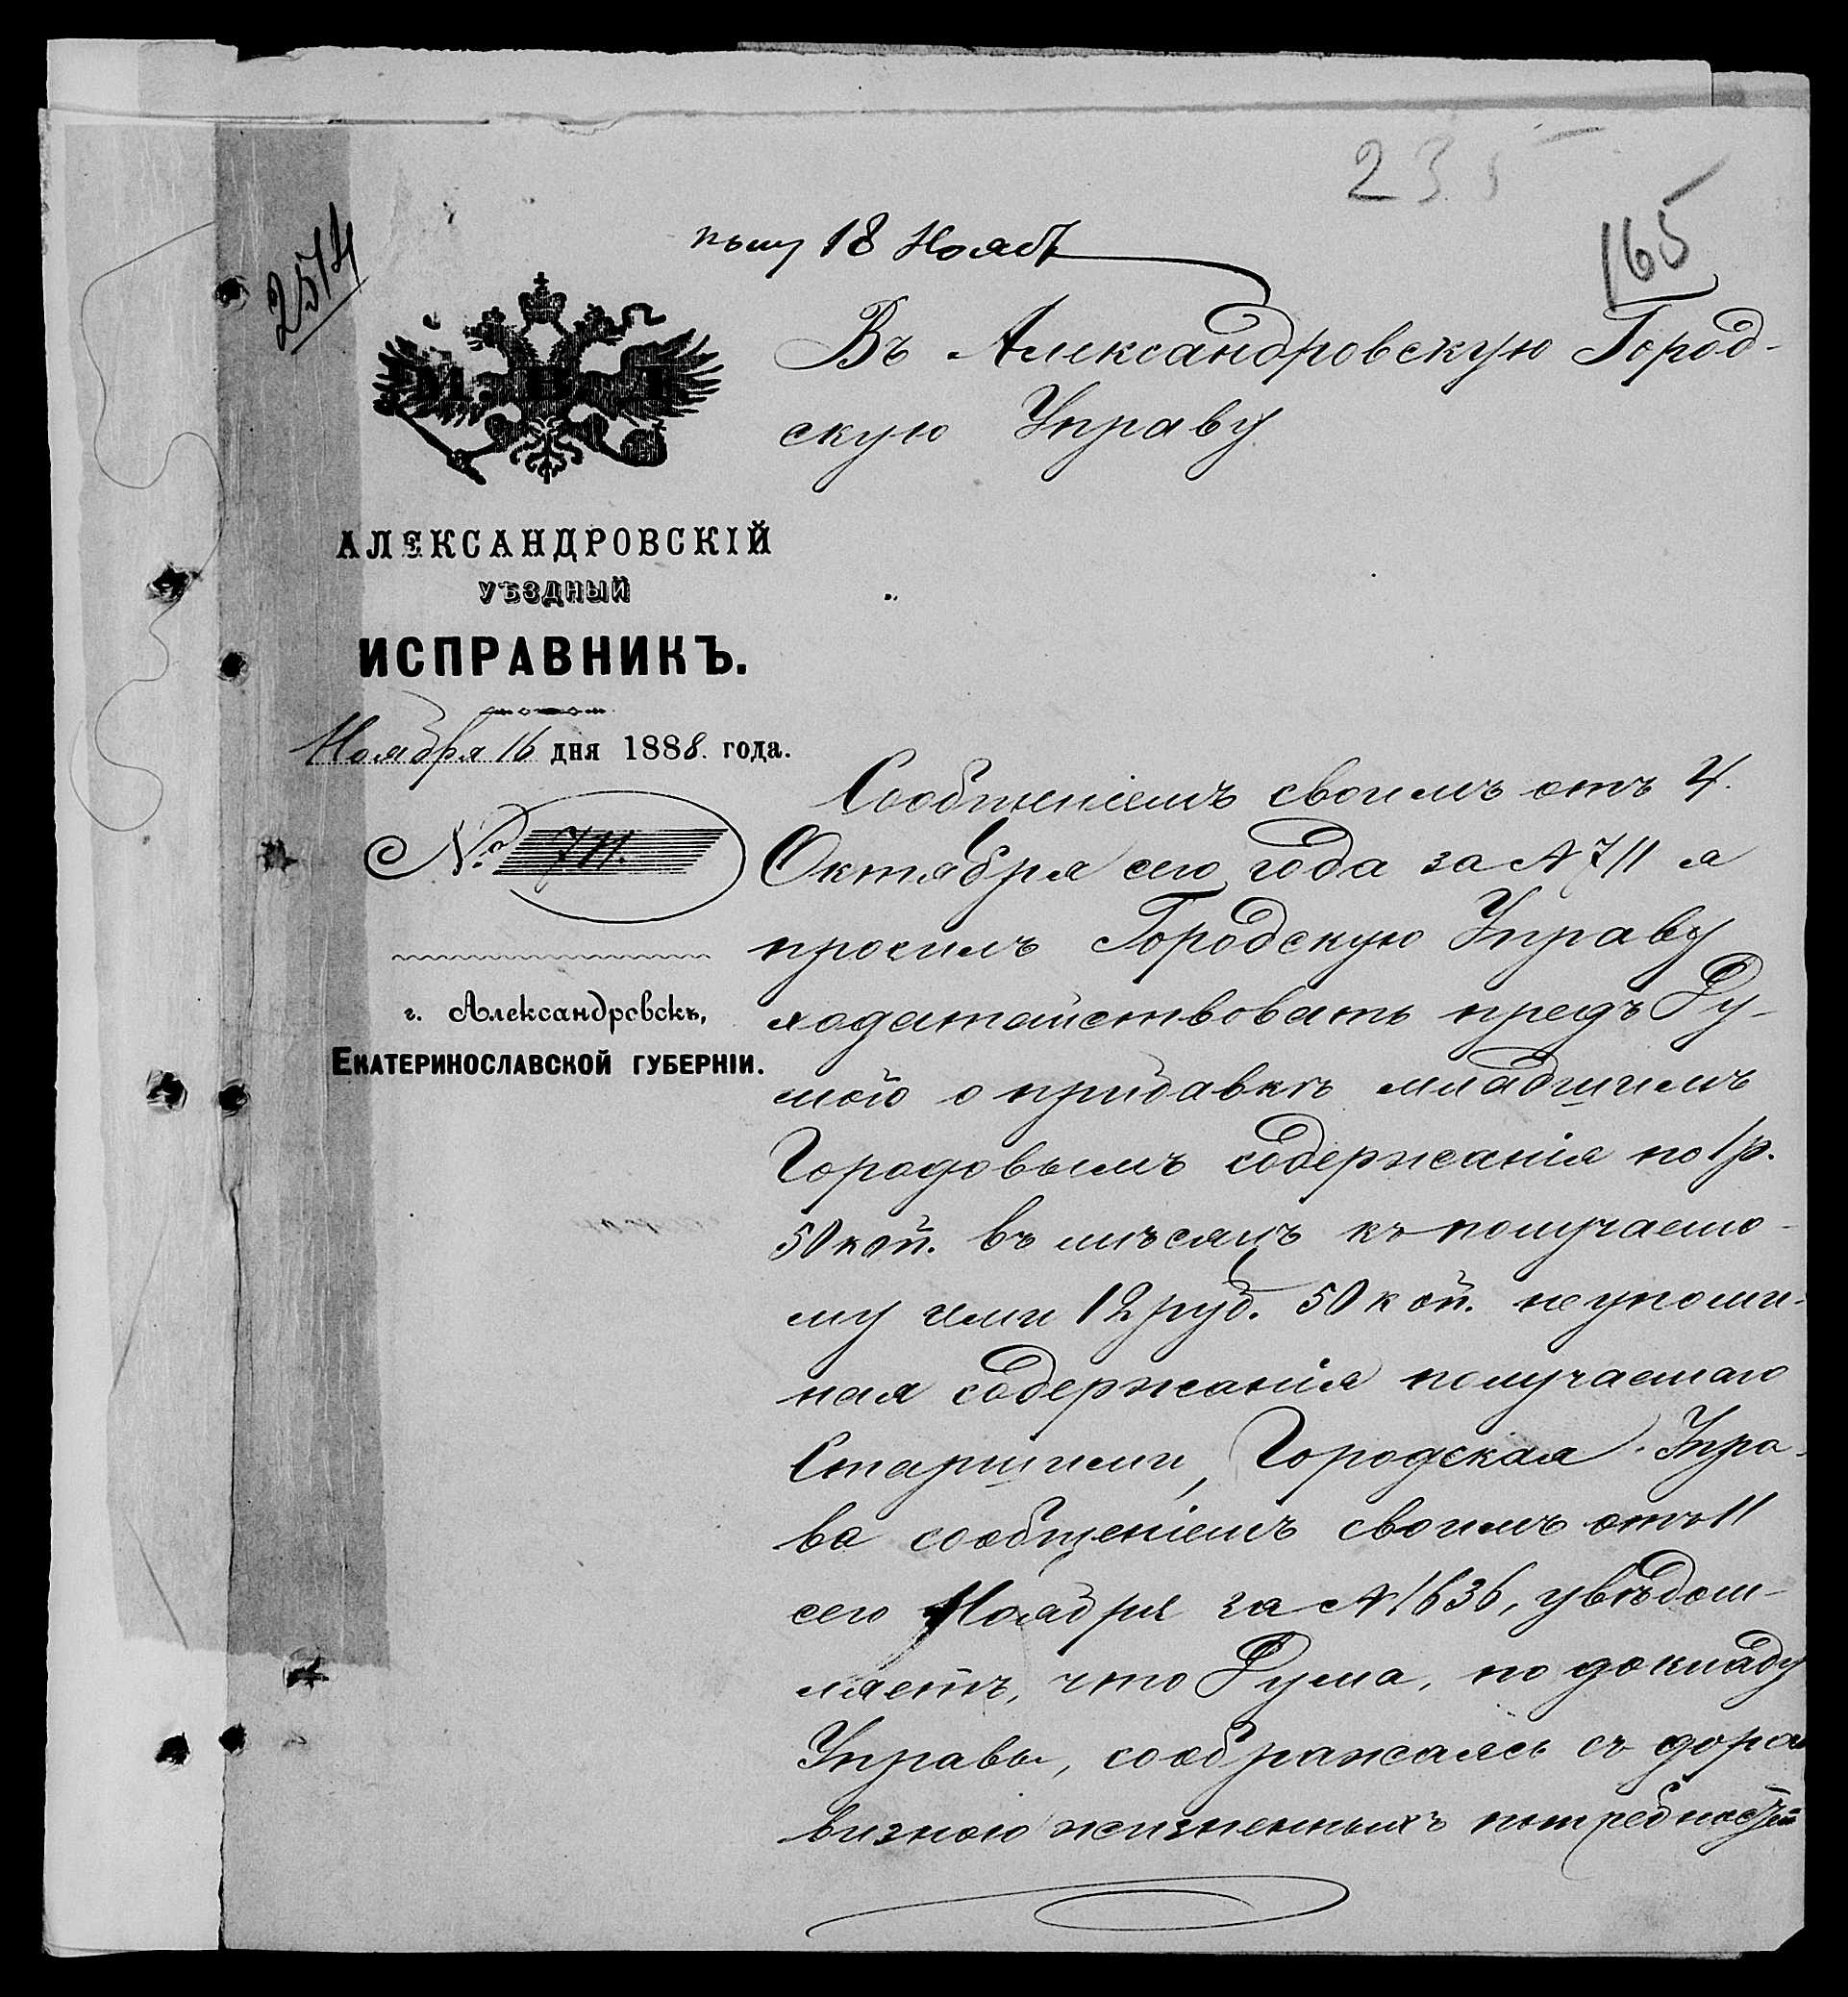 235
165
2574
18 Нояб
Въ Александровскую Город-
скую Управу
М В Д
АЛЕКСАНДРОВСКІЙ
УѢЗДНЫЙ
ИСПРАВНИКЪ.
Ноября 16 дня 1888. года.
№ 711.
г. Александровскъ,
ЕКАТЕРИНОСЛАВСКОЙ ГУБЕРНІИ.
Сообщеніемъ своимъ отъ 4.
Октября сего года за № 711 я
просилъ Городскую Управу
ходатайствовать предъ Ду-
мою о придавкѣ младшимъ
Городовымъ содержанія по 1 р.
50 коп. въ мѣсяцъ къ получаемо-
му ими 12 руб. 50 коп. не упоми-
ная содержанія получаемаго
Старшими, Городская Упра-
ва сообщеніемъ своимъ отъ 11
сего Ноября за № 1636, увѣдом-
ляетъ, что Дума, по докладу
Управы, соображаясь съ доро-
визною жизненныхъ потребностей